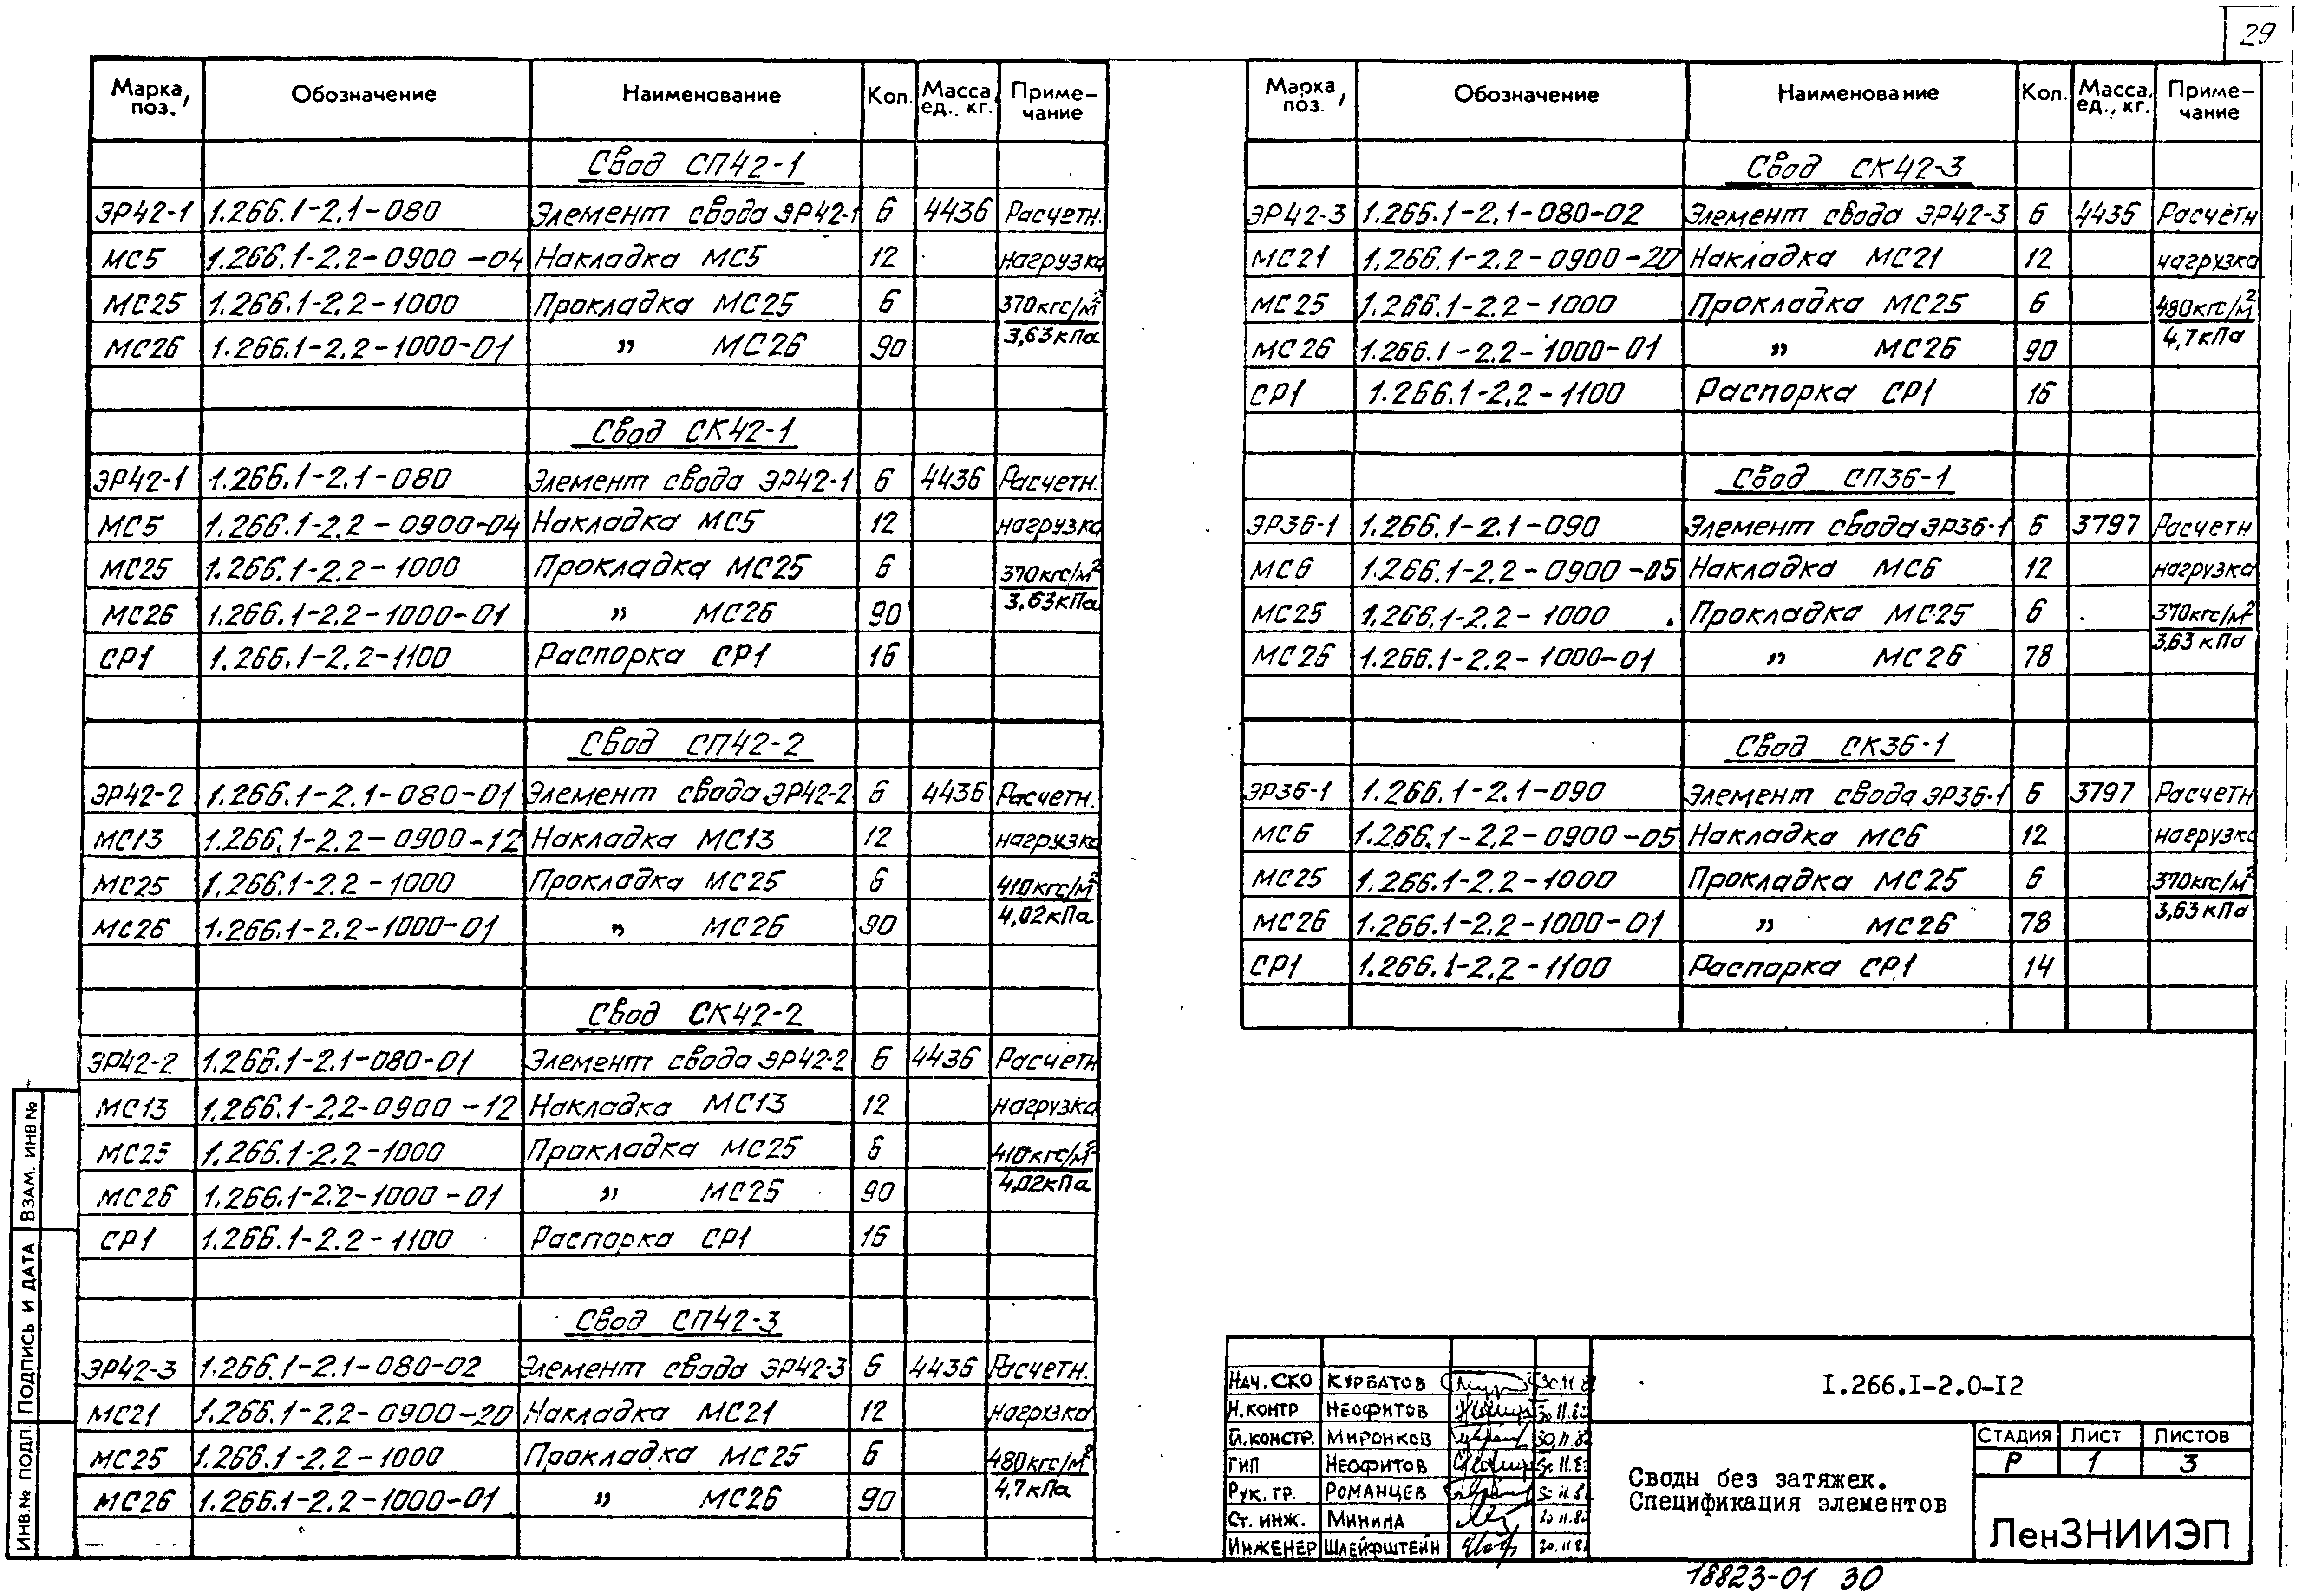 29
Марка, поз. Обозначение Наименование Кол. Масса ед., кг. Примечание
Свод СП42-1
ЭР42-1 1.266.1-2.1-080 Элемент свода ЭР42-1 6 4436 Расчетн.
МС5 1.266.1-2.2-0900-04 Накладка МС5 12 нагрузка
МС25 1.266.1-2.2-1000 Прокладка МС25 6 370кгс/м²
МС26 1.266.1-2.2-1000-01 " МС26 90 3,63кПа
Свод СК42-1
ЭР42-1 1.266.1-2.1-080 Элемент свода ЭР42-1 6 4436 Расчетн.
МС5 1.266.1-2.2-0900-04 Накладка МС5 12 нагрузка
МС25 1.266.1-2.2-1000 Прокладка МС25 6 370кгс/м²
МС26 1.266.1-2.2-1000-01 " МС26 90 3,63кПа
СР1 1.266.1-2.2-1100 Распорка СР1 16
Свод СП42-2
ЭР42-2 1.266.1-2.1-080-01 Элемент свода ЭР42-2 6 4436 Расчетн.
МС13 1.266.1-2.2-0900-12 Накладка МС13 12 нагрузка
МС25 1.266.1-2.2-1000 Прокладка МС25 6 410кгс/м²
МС26 1.266.1-2.2-1000-01 " МС26 90 4,02кПа
Свод СК42-2
ЭР42-2 1.266.1-2.1-080-01 Элемент свода ЭР42-2 6 4436 Расчетн
МС13 1.266.1-2.2-0900-12 Накладка МС13 12 нагрузка
МС25 1.266.1-2.2-1000 Прокладка МС25 6 410кгс/м²
МС26 1.266.1-2.2-1000-01 " МС26 90 4,02кПа
СР1 1.266.1-2.2-1100 Распорка СР1 16
Свод СП42-3
ЭР42-3 1.266.1-2.1-080-02 Элемент свода ЭР42-3 6 4436 Расчетн.
МС21 1.266.1-2.2-0900-20 Накладка МС21 12 нагрузка
МС25 1.266.1-2.2-1000 Прокладка МС25 6 480кгс/м²
МС26 1.266.1-2.2-1000-01 " МС26 90 4,7кПа
Марка, поз. Обозначение Наименование Кол. Масса, ед., кг. Примечание
Свод СК42-3
ЭР42-3 1.266.1-2.1-080-02 Элемент свода ЭР42-3 6 4436 Расчетн
МС21 1.266.1-2.2-0900-20 Накладка МС21 12 нагрузка
МС25 1.266.1-2.2-1000 Прокладка МС25 6 480кгс/м²
МС26 1.266.1-2.2-1000-01 " МС26 90 4,7кПа
СР1 1.266.1-2.2-1100 Распорка СР1 16
Свод СП36-1
ЭР36-1 1.266.1-2.1-090 Элемент свода ЭР36-1 6 3797 Расчетн
МС6 1.266.1-2.2-0900-05 Накладка МС6 12 нагрузка
МС25 1.266.1-2.2-1000 Прокладка МС25 6 370кгс/м²
МС26 1.266.1-2.2-1000-01 " МС26 78 3,63кПа
Свод СК36-1
ЭР36-1 1.266.1-2.1-090 Элемент свода ЭР36-1 6 3797 Расчетн
МС6 1.266.1-2.2-0900-05 Накладка МС6 12 нагрузка
МС25 1.266.1-2.2-1000 Прокладка МС25 6 370кгс/м²
МС26 1.266.1-2.2-1000-01 " МС26 78 3,63кПа
СР1 1.266.1-2.2-1100 Распорка СР1 14
ИНВ.№ ПОДЛ. ПОДПИСЬ И ДАТА ВЗАМ. ИНВ №
НАЧ. СКО КУРБАТОВ 30.11.82
Н.КОНТР НЕОФИТОВ 30.11.82
ГЛ.КОНСТР. МИРОНКОВ 30.11.82
ГИП НЕОФИТОВ 30.11.82
РУК. ГР. РОМАНЦЕВ 30.11.82
СТ. ИНЖ. МИНИНА 30.11.82
ИНЖЕНЕР ШЛЕЙФШТЕЙН 30.11.82
I.266.I-2.0-I2
Своды без затяжек.
Спецификация элементов
СТАДИЯ ЛИСТ ЛИСТОВ
Р 1 3
ЛенЗНИИЭП
18823-01 30